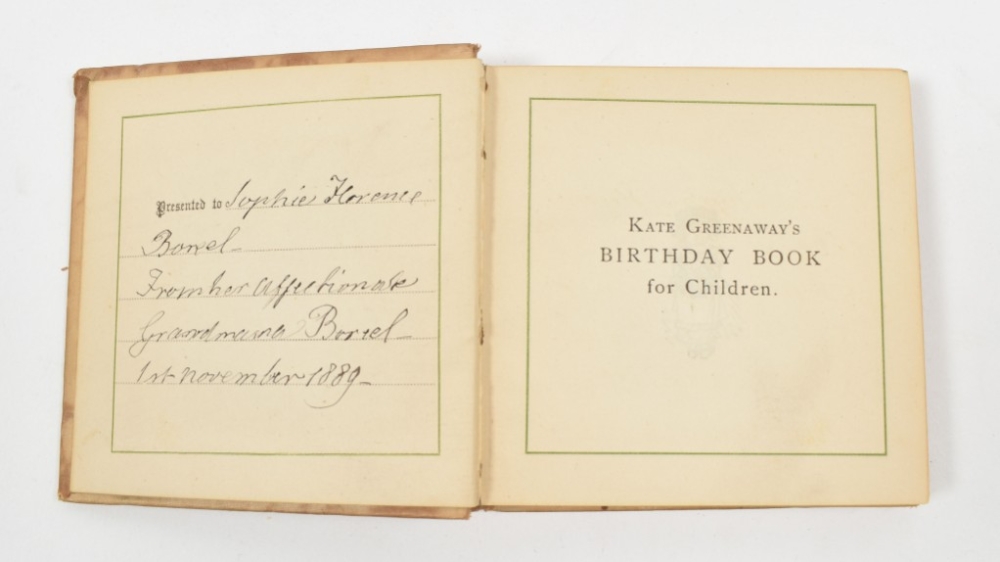 Presented to Sophie Florence
From her affectionate
Grandmama
1st November 1889
KATE GREENAWAY'S
BIRTHDAY BOOK
for Children.